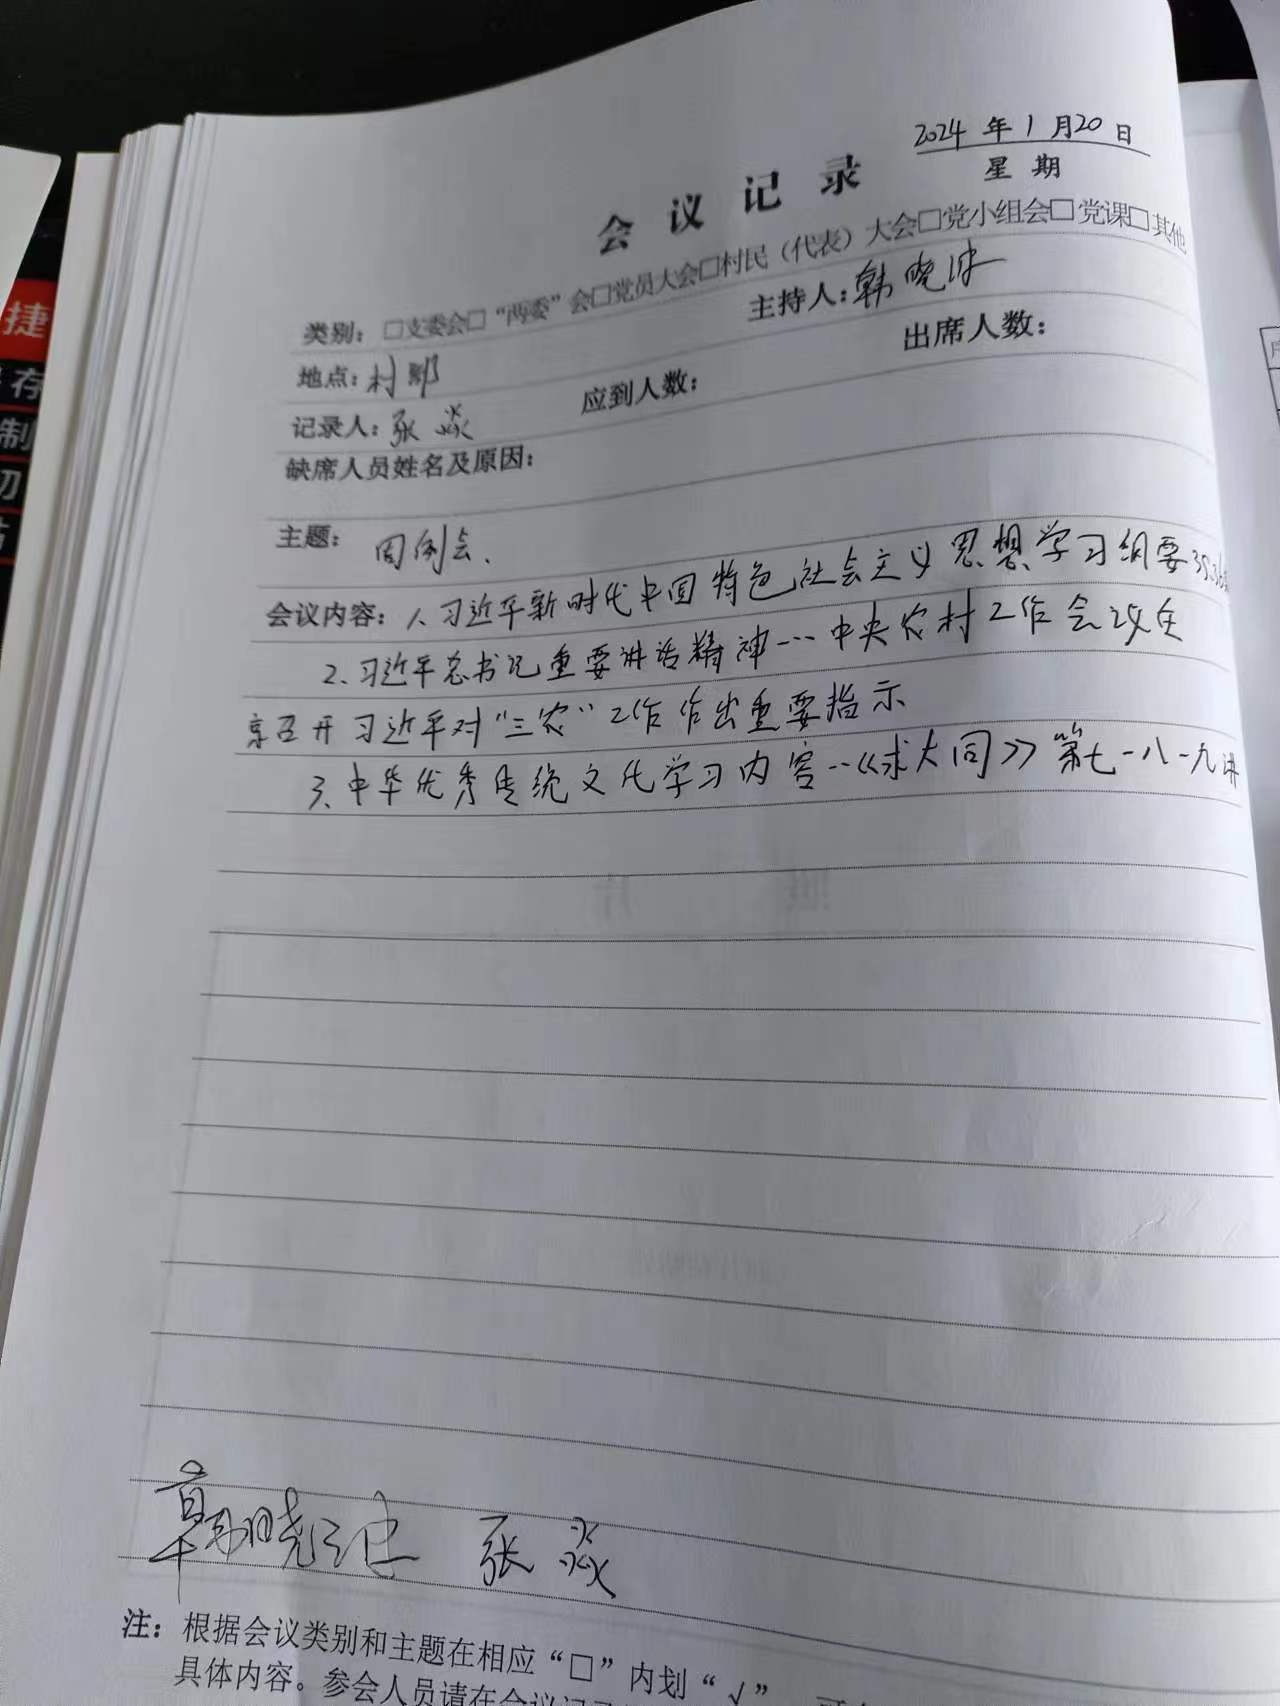 2024 年 1 月 20 日
星 期
会 议 记 录
类别：□支委会□“两委”会□党员大会□村民（代表）大会□党小组会□党课□其他
地点：村部 主持人：韩晓冰
记录人：张焱 应到人数： 出席人数：
缺席人员姓名及原因：
主题： 周例会、
会议内容：1、习近平新时代中国特色社会主义思想学习纲要35.36
2、习近平总书记重要讲话精神…中央农村工作会议在
京召开 习近平对“三农”工作作出重要指示
3、中华优秀传统文化学习内容…《求大同》第七-八-九讲
张焱
注：根据会议类别和主题在相应“□”内划“√”
具体内容。参会人员请在会议记录
捷
存
制
切